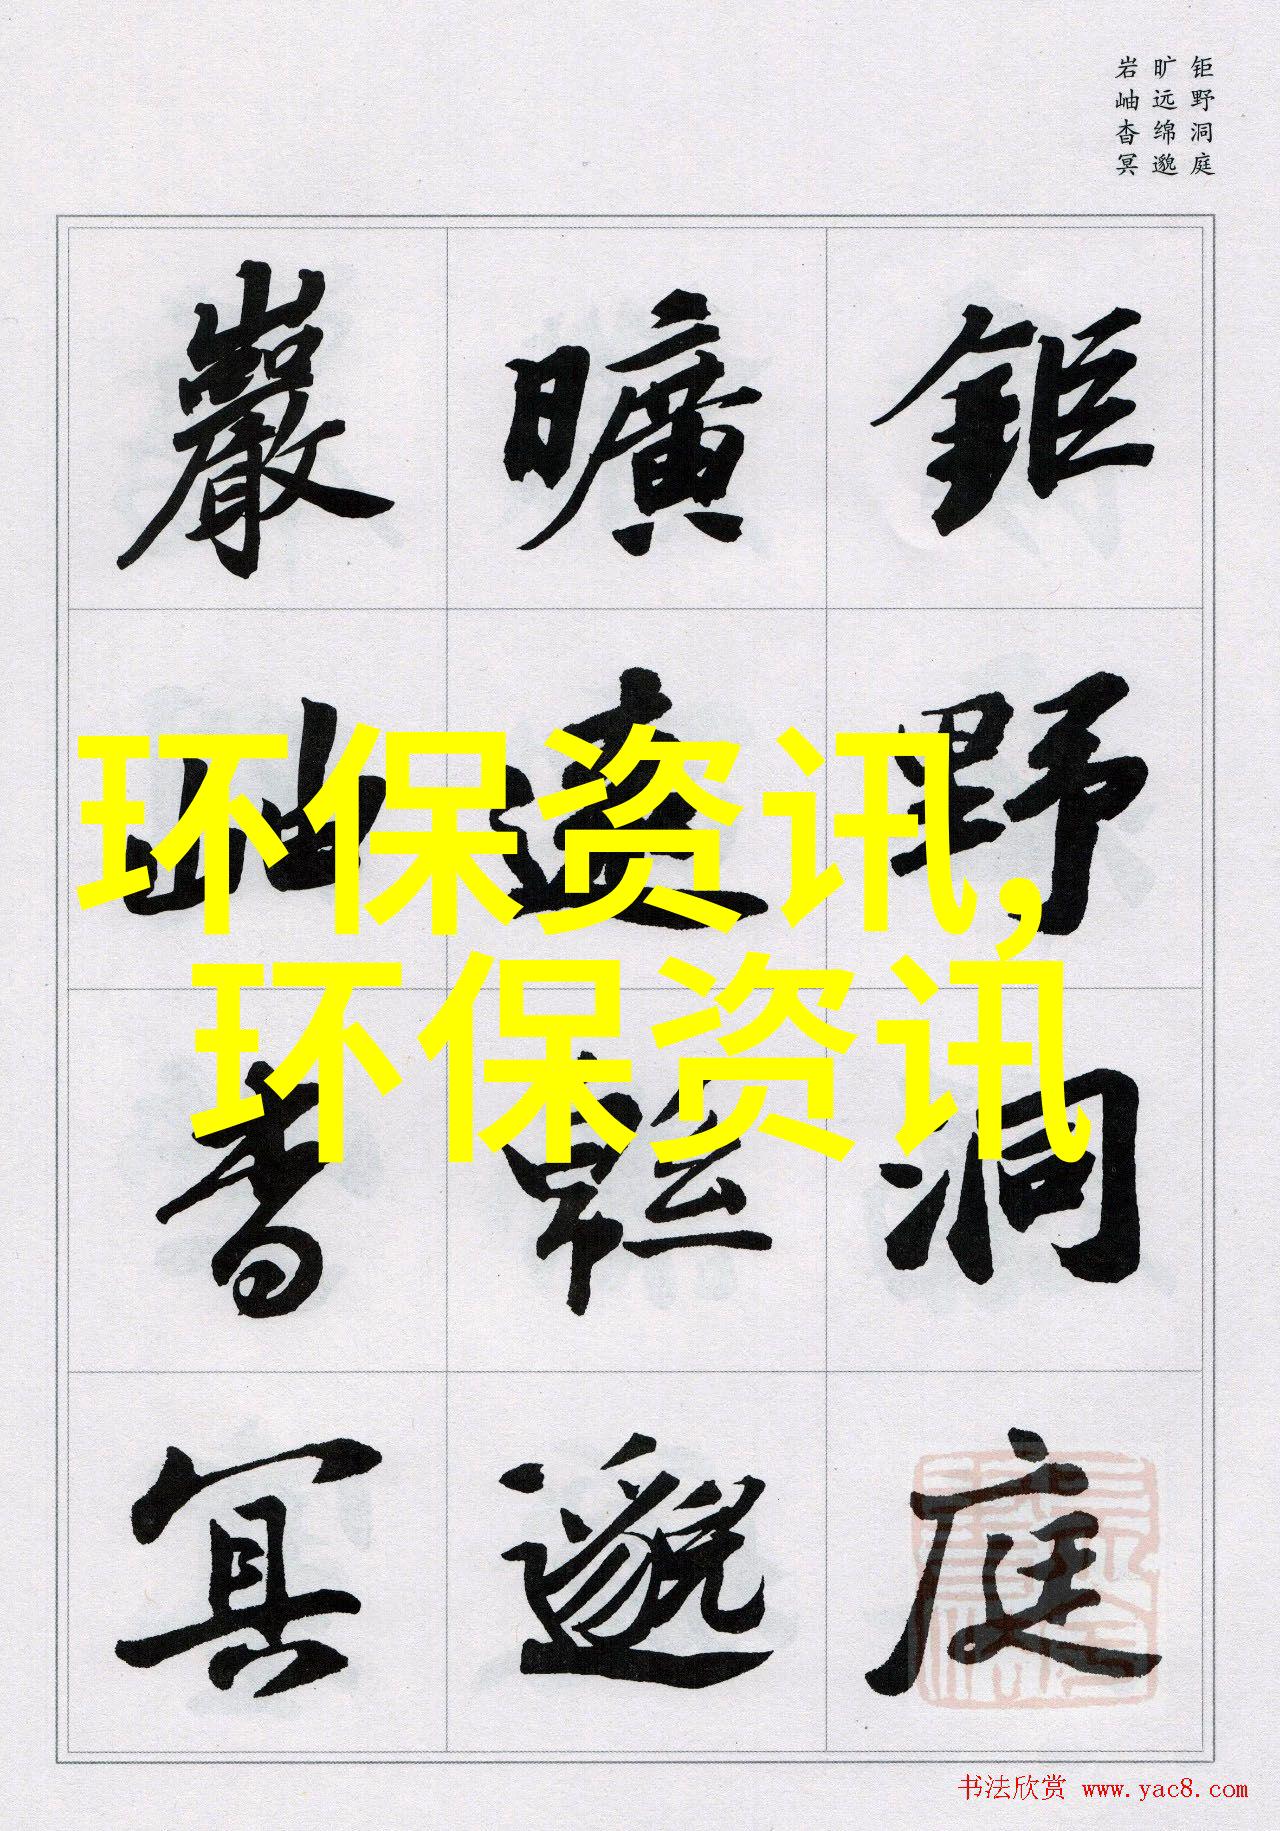 钜野洞庭
旷远绵邈
岩岫杳冥
鉅野洞庭
曠遠緜邈
巖岫杳冥
环保资讯,
环保资讯
书法欣赏 www.yac8.com